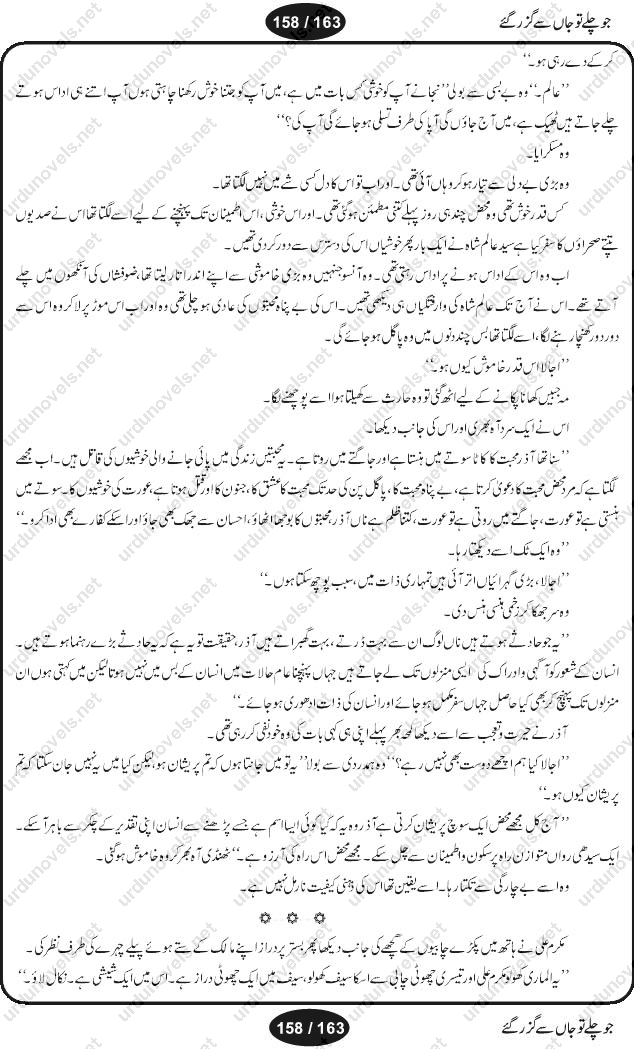 جو چلے تو جاں سے گزر گئے
158 / 163
کر کے دے رہی ہو۔‘‘
’’عالم۔‘‘ وہ بے بسی سے بولی’’ نجانے آپ کو خوشی کس بات میں ہے، میں آپ کو جتنا خوش رکھنا چاہتی ہوں آپ اتنے ہی اداس ہوتے
چلے جاتے ہیں ٹھیک ہے، میں آج جاؤں گی آپا کی طرف تسلی ہو جائے گی آپ کی؟‘‘
وہ مسکرایا۔
وہ بڑی بے دلی سے تیار ہو کر وہاں آئی تھی۔ اور اب تو اس کا دل کسی شے میں نہیں لگتا تھا۔
کس قدر خوش تھی وہ محض چند ہی روز پہلے کتنی مطمئن ہو گئی تھی۔ اور اس خوشی ، اس اطمینان تک پہنچنے کے لیے اسے لگتا تھا اس نے صدیوں
تپتے صحراؤں کا سفر کیا ہے سید عالم شاہ نے ایک بار پھر خوشیاں اس کی دسترس سے دور کر دی تھیں۔
اب وہ اس کے اداس ہونے پر اداس رہتی تھی۔ وہ آنسو جنہیں وہ بڑی خاموشی سے اپنے اندر اتار لیتا تھا، ضوفشاں کی آنکھوں میں چلے
آتے تھے۔ اس نے آج تک عالم شاہ کی وارفتگیاں ہی دیکھی تھیں۔ اس کی بے پناہ محبتوں کی عادی ہو چلی تھی وہ اور اب اس موڑ پر لا کر وہ اس سے
دور دور کھنچا رہنے لگا، اسے لگتا تھا بس چند دنوں میں وہ پاگل ہو جائے گی ۔
’’اجالا اس قدر خاموش کیوں ہو۔‘‘
مہ جبیں کھانا پکانے کے لیے اٹھ گئی تو وہ حارث سے کھیلتا ہوا اسے پوچھنے لگا۔
اس نے ایک سرد آہ بھری اور اس کی جانب دیکھا۔
’’سنا تھا آذر محبت کا کاٹا سوتے میں ہنستا ہے اور جاگتے میں روتا ہے۔ یہ محبتیں زندگی میں پائی جانے والی خوشیوں کی قاتل ہیں۔ اب مجھے
لگتا ہے کہ مرد محض محبت کا دعویٰ کرتا ہے، بے پناہ محبت کا ، پاگل پن کی حد تک محبت کا عشق کا، جنون کا اور قتل ہوتا ہے عورت کی خوشیوں کا۔ سوتے میں
ہنستی ہے تو عورت، جاگتے میں روتی ہے تو عورت، کتنا ظلم ہے ناں آذر، محبتوں کا بوجھ اٹھاؤ، احسان سے جھک بھی جاؤ اور اسکے کفارے بھی ادا کرو۔‘‘
’’وہ ایک ٹک اسے دیکھتا رہا۔
’’اجالا، بڑی گہرائیاں اتر آئی ہیں تمہاری ذات میں، سبب پوچھ سکتا ہوں۔‘‘
وہ سر جھکا کر زخمی ہنسی ہنس دی۔
’’یہ جو حادثے ہوتے ہیں ناں لوگ ان سے بہت ڈرتے، بہت گھبراتے ہیں آذر، حقیقت تو یہ ہے کہ یہ حادثے بڑے رہنما ہوتے ہیں۔
انسان کے شعور کو آگہی و ادراک کی ایسی منزلوں تک لے جاتے ہیں جہاں پہنچنا عام حالات میں انسان کے بس میں نہیں ہوتا لیکن میں کہتی ہوں ان
منزلوں تک پہنچ کر بھی کیا حاصل جہاں سفر مکمل ہو جائے اور انسان کی ذات ادھوری ہو جائے۔‘‘
آذر نے حیرت و تعجب سے اسے دیکھا لمحہ بھر پہلے اپنی ہی کہی بات کی وہ خود نفی کر رہی تھی۔
’’اجالا کیا ہم اچھے دوست بھی نہیں رہے؟‘‘ وہ ہمدردی سے بولا’’ یہ تو میں جانتا ہوں کہ تم پریشان ہو، لیکن کیا میں یہ نہیں جان سکتا کہ تم
پریشان کیوں ہو۔‘‘
’’آج کل مجھے محض ایک سوچ پریشان کرتی ہے آذر وہ یہ کہ کیا کوئی ایسا اسم ہے جسے پڑھنے سے انسان اپنی تقدیر کے چکر سے باہر آ سکے۔
ایک سیدھی رواں متوازن راہ پر سکون و اطمینان سے چل سکے۔ مجھے محض اس راہ کی آرزو ہے۔‘‘ ٹھنڈی آہ بھر کر وہ خاموش ہو گئی۔
وہ اسے بے چارگی سے تکتا رہا۔ اسے یقین تھا اس کی ذہنی کیفیت نارمل نہیں ہے۔
مکرم علی نے ہاتھ میں پکڑے چابیوں کے گچھے کی جانب دیکھا پھر بستر پر دراز اپنے مالک کے ستے ہوئے پیلے چہرے کی طرف نظر کی۔
’’یہ الماری کھولو مکرم علی اور تیسری چھوٹی چابی سے اسکا سیف کھولو، سیف میں ایک چھوٹی دراز ہے۔ اس میں ایک شیشی ہے۔ نکال لاؤ۔‘‘
158 / 163
جو چلے تو جاں سے گزر گئے
urdunovels.net